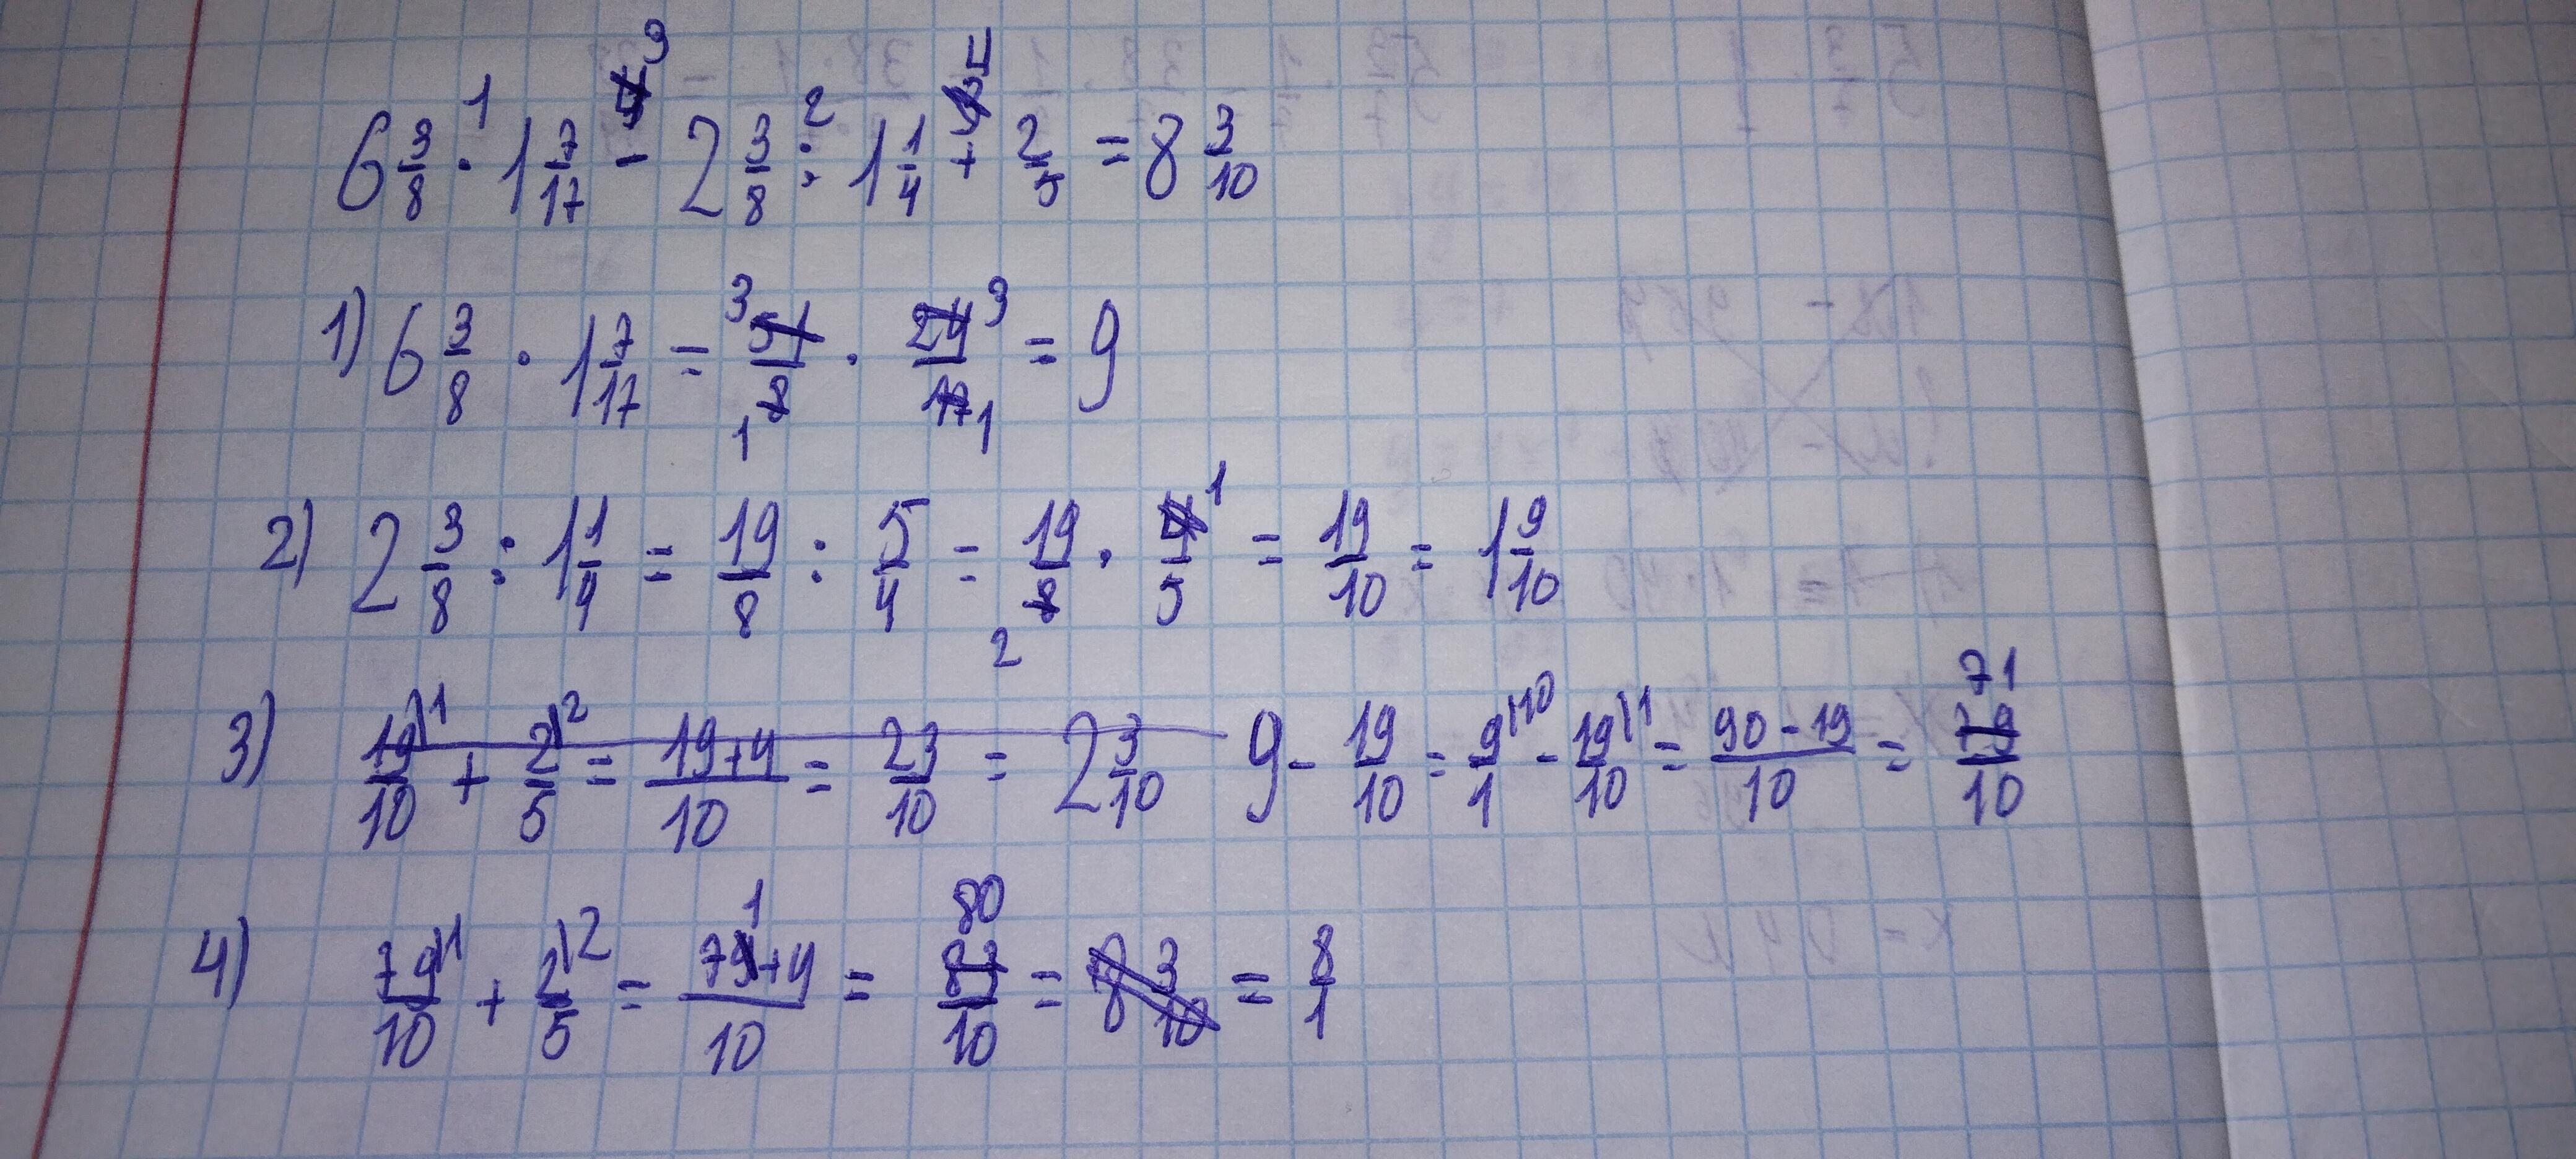 6 3/8 · 1 7/17 - 2 3/8 : 1 1/4 + 2/5 = 8 3/10
1) 6 3/8 · 1 7/17 = 51/8 · 24/17 = 9
2) 2 3/8 : 1 1/4 = 19/8 : 5/4 = 19/8 · 4/5 = 19/10 = 1 9/10
3) 19/10 + 2/5 = 19+4/10 = 23/10 = 2 3/10 9 - 19/10 = 9/1 - 19/10 = 90-19/10 = 71/10
4) 79/10 + 2/5 = 71+4/10 = 80/10 = 8 3/10 = 8/1